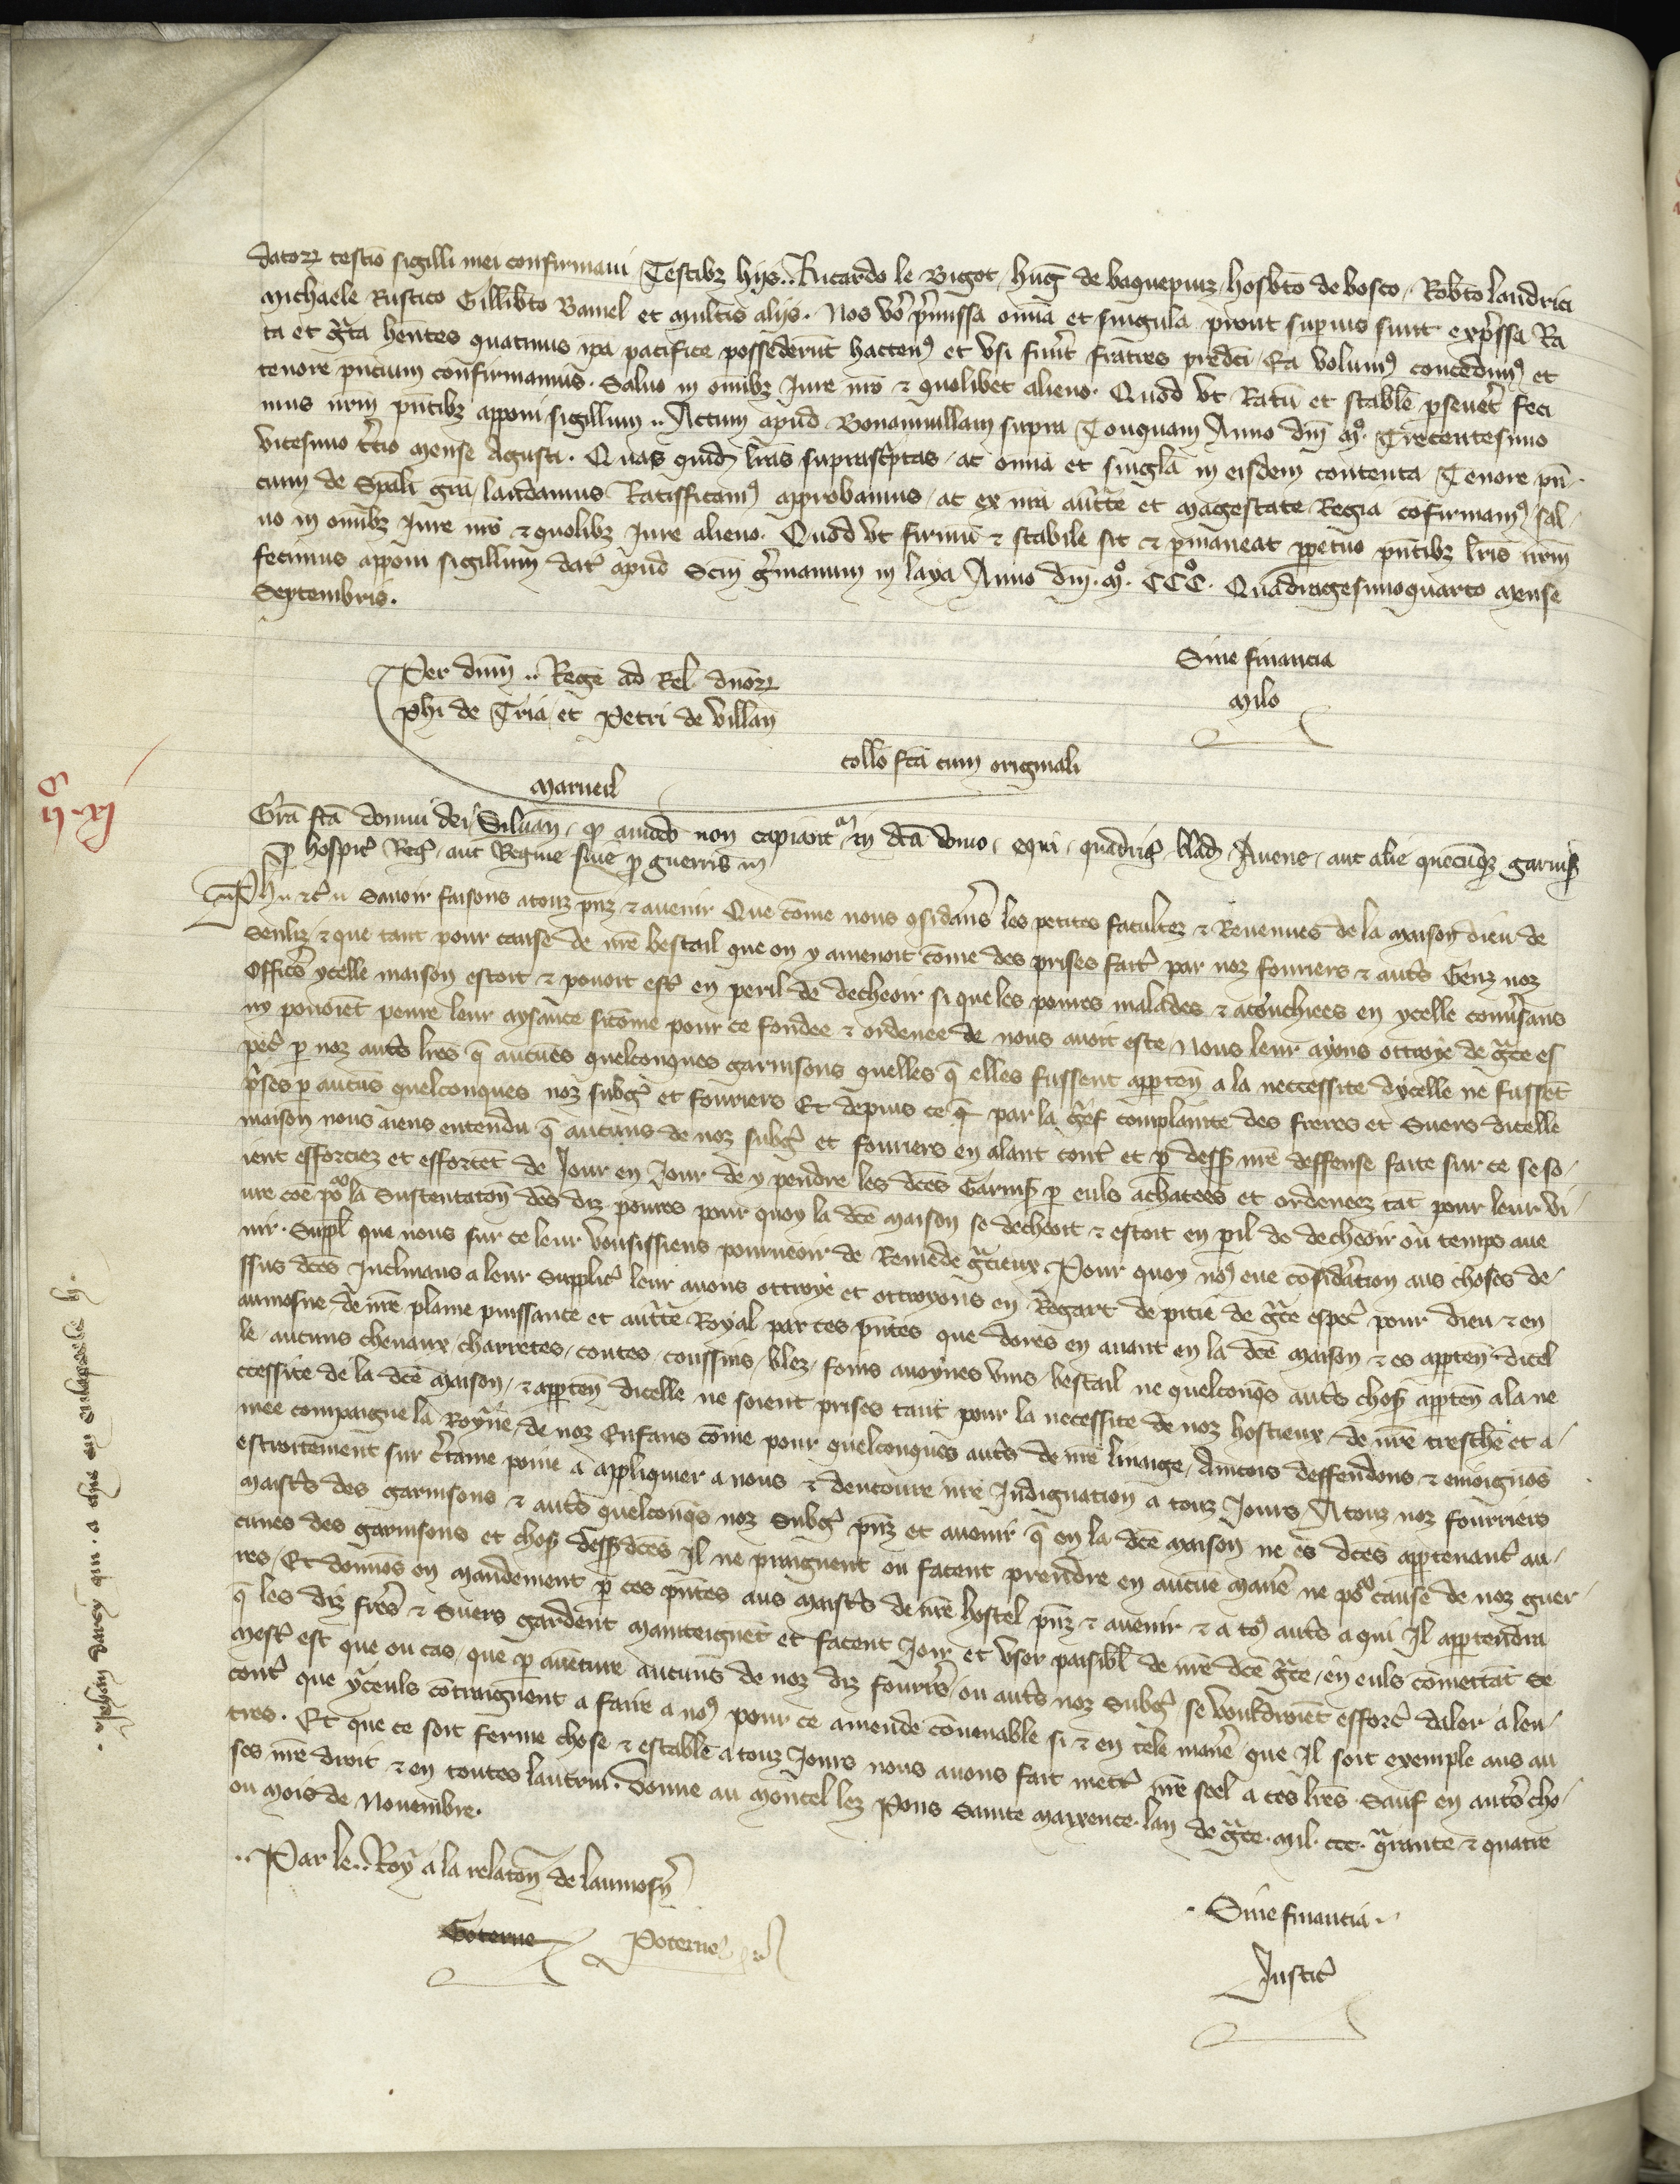 datorꝝ testīo sigilli mei confirmaui Testibꝫ hijs.. Ricardo le Bigot, huḡ de baquepuiz, hosb̄to de bosco, Rob̄to landrici
Michaele Rustico Gillib̄to Bauiel et multis alijs. Nos vo p̄missa om̄ia et singula prout superius sunt exp̄ssa Ra
ta et g̃ta hentes quatinus ip̄a pacifice possederūt hacten⁹ et vsi fuer̄t fratres predc̄i Ea volum⁹ concedim⁹ et
tenore pn̄cium confirmamus. Saluo in om̄ibꝫ Iure nr̄o ⁊ quolibet alieno. Quod vt Ratū et stabile pseuet̄ feci
mus nr̄m pn̄tibꝫ apponi sigillum.. Actum apud Bonamuillam supra Touquam Anno dn̄i M°. Trecentesimo
vicesimo t̄cio mense Agusti. Quas quid̄ lr̄as suprascp̄tas, ac om̄ia et sing̃la in eisdem contenta Tenore pn̄
cium de Spāli gr̄a, laudamus Ratifficam⁹ approbamus, ac ex nr̄a auc̄tte et magestate Regia cōfirmam⁹, sal,
uo in om̄ibꝫ Iure nr̄o ⁊ quolibꝫ Iure alieno. Quod vt firmū ⁊ stabile sit ⁊ pmaneat ppetuo pn̄tibꝫ lr̄is nr̄m
fecimus apponi sigillum dat̄ apud Scm̄ g̃manum in laya Anno dn̄i. M°. CCC°. Quadragesimoquarto mense
Septembris.
Sine financia
Milo
Per dn̄m.. Regē ad Rel̄ dn̄orꝝ
Phi de Tria, et Petri de villan̄
collō fc̄a cum originali
Marueil
ij . xj
Gr̄a fc̄a domui dei Siluan̄. q̄ amodo non capiant᷑ in dc̄a domo, equi, quadrig̃ blad̄ Auene, aut alie quecūqꝫ garnis̄
p hospit̄ Reg̃, aut Regine siue p guerris in
Ph.. ⁊c̄.. Sauoir faisons a touz pn̄z ⁊ auenir Que cōme nous ɔsidans les petites facultez ⁊ Reuenues de la maison dieu de
Senliz ⁊ que tant pour cause de nr̄e bestail que on y amenoit cōme des prises fait̄ par noz fouriers ⁊ aut̄s Genz noz
offic̄s ycelle maison estoit ⁊ pouoit est̄ en peril de decheoir si que les poures malades ⁊ acouchiees en ycelle conuersans
ny pouoient penre leur aysance sicōme pour ce fondee ⁊ ordenee de nous auoit este Nous leur ayons ottroye de g̃ce es
pec̄ p noz aut̄s lr̄es q̄ aucuēs quelconques garnisons quelles q̄ elles fussent apparten̄ a la neccessite dycelle ne fussēt
p̄ses p aucūs quelconques noz subg̃ et fouriers Et depuis ce q̄ par la g̃ef complainte des freres et Suers dicelle
maison nous aiens entendu q̄ aucuns de noz subg̃ et fouriers en alant cont̄ et p dess̄ nr̄e deffense faite sur ce se so,
ient efforciez et efforcēt de Jour en Jour de y pendre les dc̄es Garnis̄ p euls achatees et ordeneez tāt pour leur vi,
ure cōe po la Sustentaton̄ des diz poures pour quoy la dc̄e maison se decheoit ⁊ estoit en pil de decheoir ou temps aue
nir. Suppl̄ que nous sur ce leur vousissiens pourueoir de Remede g̃cieux Pour quoy no⁹ eue cōsid̄acion aus choses de,
ssus dc̄es Inclinans a leur Supplic̄ leur auons ottroye et ottroyons en Regart de pitie de g̃ce espec̄ pour dieu ⁊ en
aumosne de nr̄e plaine puissance et auc̄tte Royal par ces pn̄tes que dores en auant en la dc̄e maison ⁊ es apparten̄ dicel
le, aucuns cheuaux, charretes, coutes, coussins, blez, foins auoynes vins, bestail ne quelconq̄s aut̄s chos̄ apparten̄ a la ne
ccessite de la dc̄e maison, ⁊ apparten̄ dicelle ne soient prises tant pour la necessite de noz hostieux, de nr̄e treschē et a,
mee compaigne la Royne, de noz Enfans cōme pour quelconques aut̄s de nr̄e linaige, Aincois deffendons ⁊ enioignos
estroitement sur c̄taine poine a appliquier a nous ⁊ dencourre nr̄e Indignation a touz Jours A touz noz fourriers
maistr̄s des garnisons ⁊ aut̄s quelconq̄s noz Subg̃ pn̄z et auenir q̄ en la dc̄e maison ne es dc̄es appartenant̄ au,
cunes des garnisons et chos̄ dess̄dc̄es Il ne praignent ou facent prendre en aucue manē ne po cause de noz guer
res, Et donnos en mandement p ces pn̄tes aus maistr̄s de nr̄e hostel pn̄z ⁊ auenir ⁊ a to⁹ aut̄s a qui Il appartendra
q̄ les diz fres ⁊ Suers gardent mainteignēt et facent Joir et vser paisibl̄ de nr̄e dc̄e g̃ce, en euls cōmettāt se
mest̄ est que ou cas, que p auēture aucuns de noz diz fourr̄s, ou aut̄s noz Subg̃ se vouldroiēt efforc̄ daler a len,
cont̄ que yceuls cōtraignent a faire a no⁹ pour ce amende cōuenable si ⁊ en tele manē que Il soit exemple aus au
tres. Et que ce soit ferme chose ⁊ estable a touz Jours nous auons fait mett̄ nr̄e seel a ces lr̄es. Sauf en aut̄s cho,
ses nr̄e droit ⁊ en toutes lautrui. Donne au moncel lez Pons Sainte Maxence. lan de g̃ce. Mil. ccc. q̃rante ⁊ quatre
ou mois de Nouembre.
.. Par le.. Roy a la relaton̄ de laumosn̄
Goterne Poterne
. Sine financia..
Justic̄